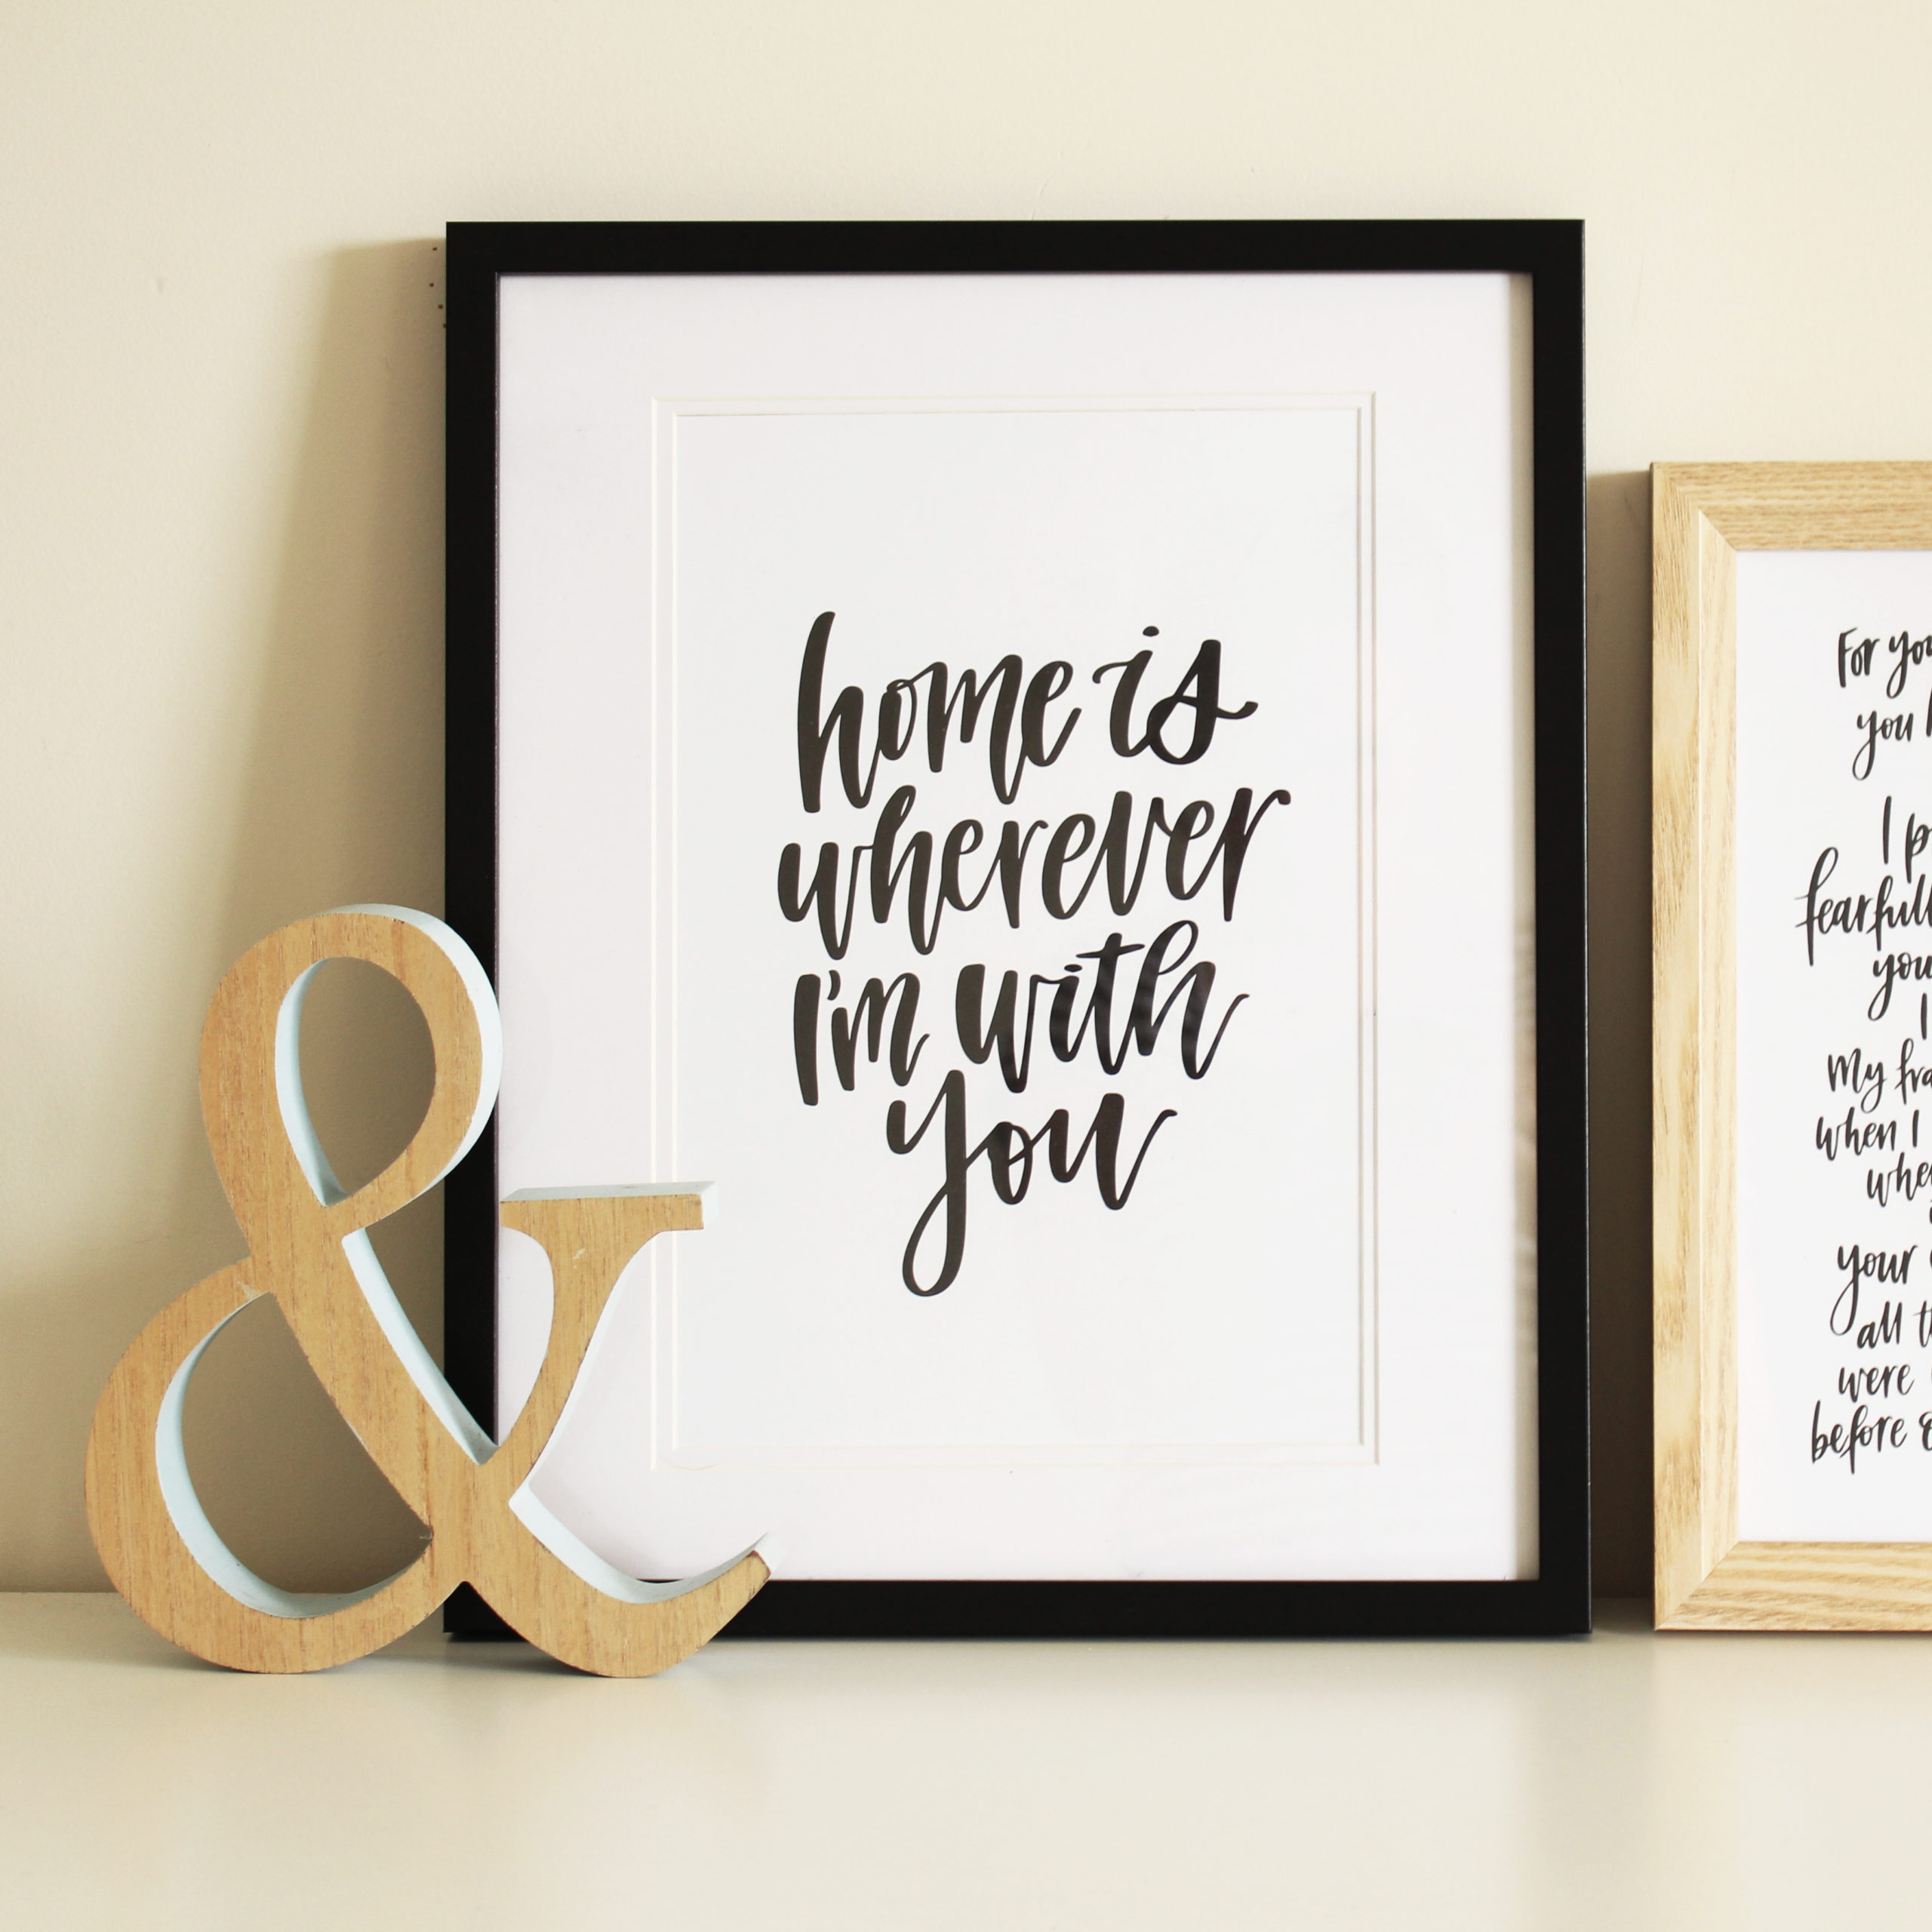 &
home is
wherever
I'm with
you
For you
you
I
fearfull
you
I
My fra
when I
when
your
all th
were
before